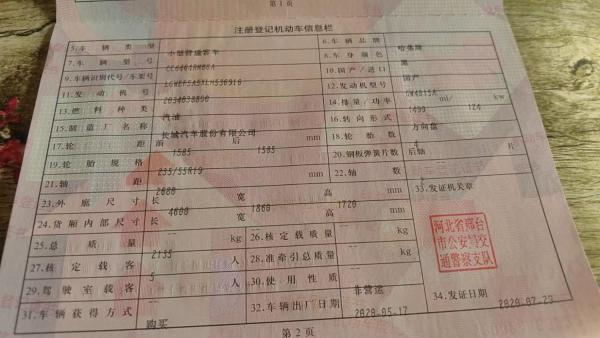 第1页
注册登记机动车信息栏
5.车辆类型 小型普通客车 6.车辆品牌 哈弗牌
7.车辆型号 8.车身颜色 黑
9.车辆识别代号/车架号 10.国产/进口 国产
11.发动机号 2034038890 12.发动机型号 GW4B15A
13.燃料种类 汽油 14.排量/功率 1499 ml/ 124 kw
15.制造厂名称 长城汽车股份有限公司 16.转向形式 方向盘
17.轮距 前 1585 后 1585 mm 18.轮胎数 4
19.轮胎规格 235/55R19 20.钢板弹簧片数 后轴 -- 片
21.轴距 2680 mm 22.轴数 2
23.外廓尺寸 长 4600 宽 1860 高 1720 mm 33.发证机关章
24.货厢内部尺寸 长 -- 宽 -- 高 -- mm
25.总质量 2135 kg 26.核定载质量 -- kg
27.核定载客 5 人 28.准牵引总质量 -- kg
29.驾驶室载客 -- 人 30.使用性质 非营运
31.车辆获得方式 购买 32.车辆出厂日期 2020-05-17 34.发证日期 2020-07-29
河北省邢台
市公安局交
通警察支队
第2页